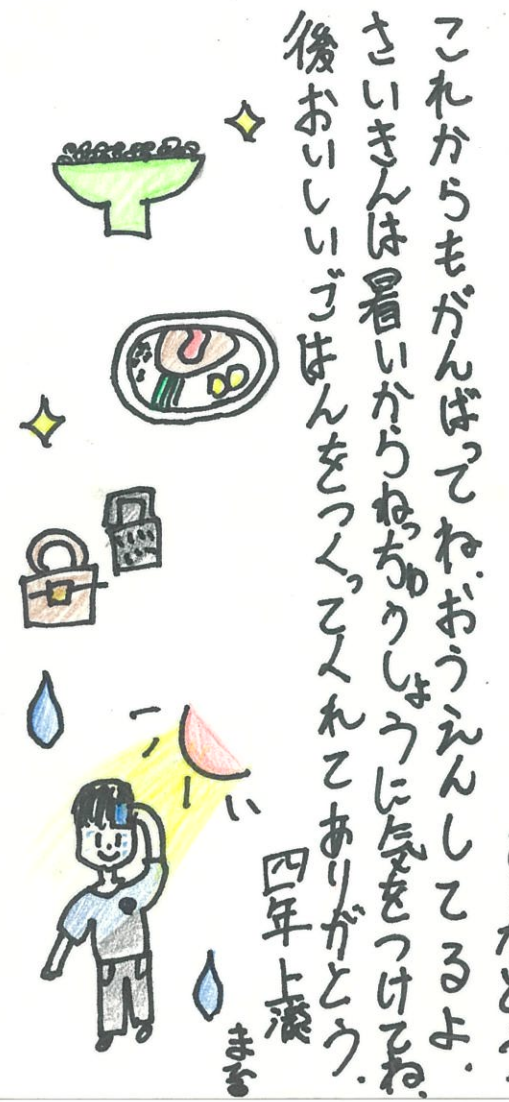 これからもがんばってね。おうえんしてるよ。
さいきんは暑いからねっちゅうしょうに気をつけてね。
後おいしいごはんをつくってくれてありがとう。
四年 上瀧
まる